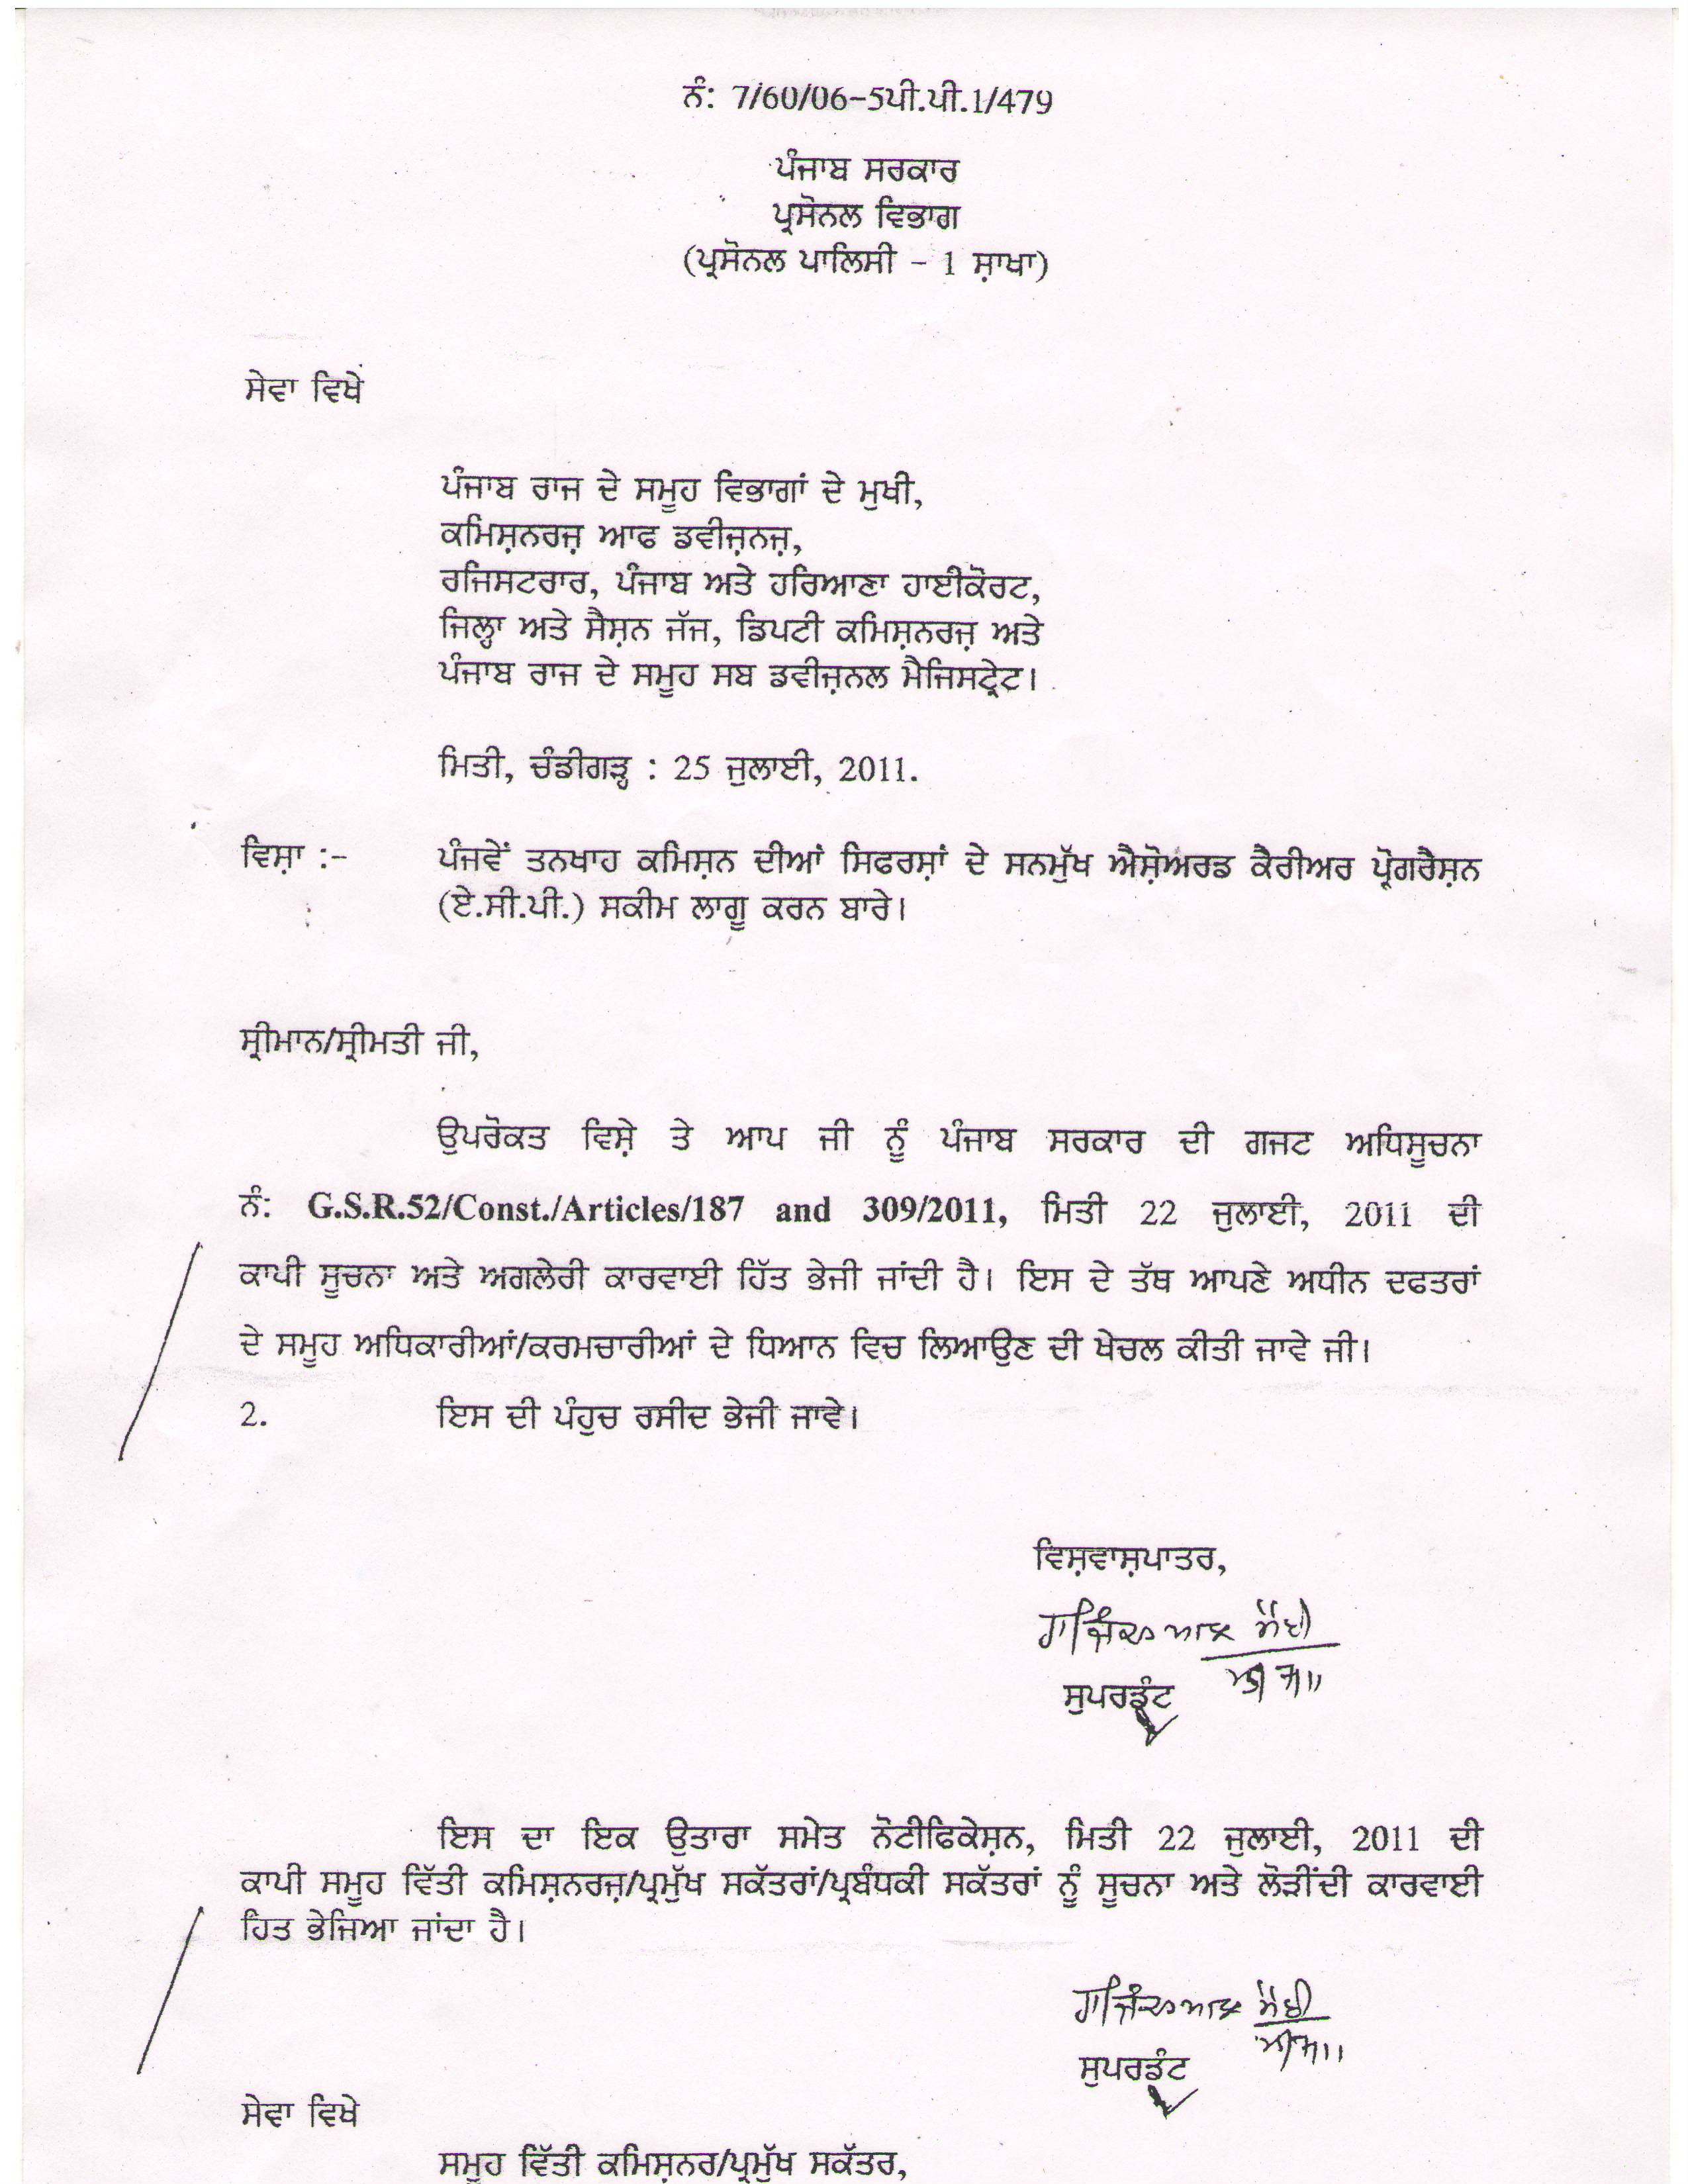 ਨੰ: 7/60/06-5ਪੀ.ਪੀ.1/479
ਪੰਜਾਬ ਸਰਕਾਰ
ਪ੍ਰਸੋਨਲ ਵਿਭਾਗ
(ਪ੍ਰਸੋਨਲ ਪਾਲਿਸੀ - 1 ਸ਼ਾਖਾ)
ਸੇਵਾ ਵਿਖੇ
ਪੰਜਾਬ ਰਾਜ ਦੇ ਸਮੂਹ ਵਿਭਾਗਾਂ ਦੇ ਮੁਖੀ,
ਕਮਿਸ਼ਨਰਜ਼ ਆਫ ਡਵੀਜ਼ਨਜ਼,
ਰਜਿਸਟਰਾਰ, ਪੰਜਾਬ ਅਤੇ ਹਰਿਆਣਾ ਹਾਈਕੋਰਟ,
ਜਿਲ੍ਹਾ ਅਤੇ ਸੈਸ਼ਨ ਜੱਜ, ਡਿਪਟੀ ਕਮਿਸ਼ਨਰਜ਼ ਅਤੇ
ਪੰਜਾਬ ਰਾਜ ਦੇ ਸਮੂਹ ਸਬ ਡਵੀਜ਼ਨਲ ਮੈਜਿਸਟ੍ਰੇਟ।
ਮਿਤੀ, ਚੰਡੀਗੜ੍ਹ : 25 ਜੁਲਾਈ, 2011.
ਵਿਸ਼ਾ :- ਪੰਜਵੇਂ ਤਨਖਾਹ ਕਮਿਸ਼ਨ ਦੀਆਂ ਸਿਫਰਸ਼ਾਂ ਦੇ ਸਨਮੁੱਖ ਐਸ਼ੋਅਰਡ ਕੈਰੀਅਰ ਪ੍ਰੋਗਰੈਸ਼ਨ
(ਏ.ਸੀ.ਪੀ.) ਸਕੀਮ ਲਾਗੂ ਕਰਨ ਬਾਰੇ।
ਸ੍ਰੀਮਾਨ/ਸ੍ਰੀਮਤੀ ਜੀ,
ਉਪਰੋਕਤ ਵਿਸ਼ੇ ਤੇ ਆਪ ਜੀ ਨੂੰ ਪੰਜਾਬ ਸਰਕਾਰ ਦੀ ਗਜਟ ਅਧਿਸੂਚਨਾ
ਨੰ: G.S.R.52/Const./Articles/187 and 309/2011, ਮਿਤੀ 22 ਜੁਲਾਈ, 2011 ਦੀ
ਕਾਪੀ ਸੂਚਨਾ ਅਤੇ ਅਗਲੇਰੀ ਕਾਰਵਾਈ ਹਿੱਤ ਭੇਜੀ ਜਾਂਦੀ ਹੈ। ਇਸ ਦੇ ਤੱਥ ਆਪਣੇ ਅਧੀਨ ਦਫਤਰਾਂ
ਦੇ ਸਮੂਹ ਅਧਿਕਾਰੀਆਂ/ਕਰਮਚਾਰੀਆਂ ਦੇ ਧਿਆਨ ਵਿਚ ਲਿਆਉਣ ਦੀ ਖੇਚਲ ਕੀਤੀ ਜਾਵੇ ਜੀ।
2. ਇਸ ਦੀ ਪੰਹੁਚ ਰਸੀਦ ਭੇਜੀ ਜਾਵੇ।
ਵਿਸ਼ਵਾਸ਼ਪਾਤਰ,
ਸੁਪਰਡੰਟ
ਇਸ ਦਾ ਇਕ ਉਤਾਰਾ ਸਮੇਤ ਨੋਟੀਫਿਕੇਸ਼ਨ, ਮਿਤੀ 22 ਜੁਲਾਈ, 2011 ਦੀ
ਕਾਪੀ ਸਮੂਹ ਵਿੱਤੀ ਕਮਿਸ਼ਨਰਜ਼/ਪ੍ਰਮੁੱਖ ਸਕੱਤਰਾਂ/ਪ੍ਰਬੰਧਕੀ ਸਕੱਤਰਾਂ ਨੂੰ ਸੂਚਨਾ ਅਤੇ ਲੋੜੀਂਦੀ ਕਾਰਵਾਈ
ਹਿਤ ਭੇਜਿਆ ਜਾਂਦਾ ਹੈ।
ਸੁਪਰਡੰਟ
ਸੇਵਾ ਵਿਖੇ
ਸਮੂਹ ਵਿੱਤੀ ਕਮਿਸ਼ਨਰ/ਪ੍ਰਮੁੱਖ ਸਕੱਤਰ,